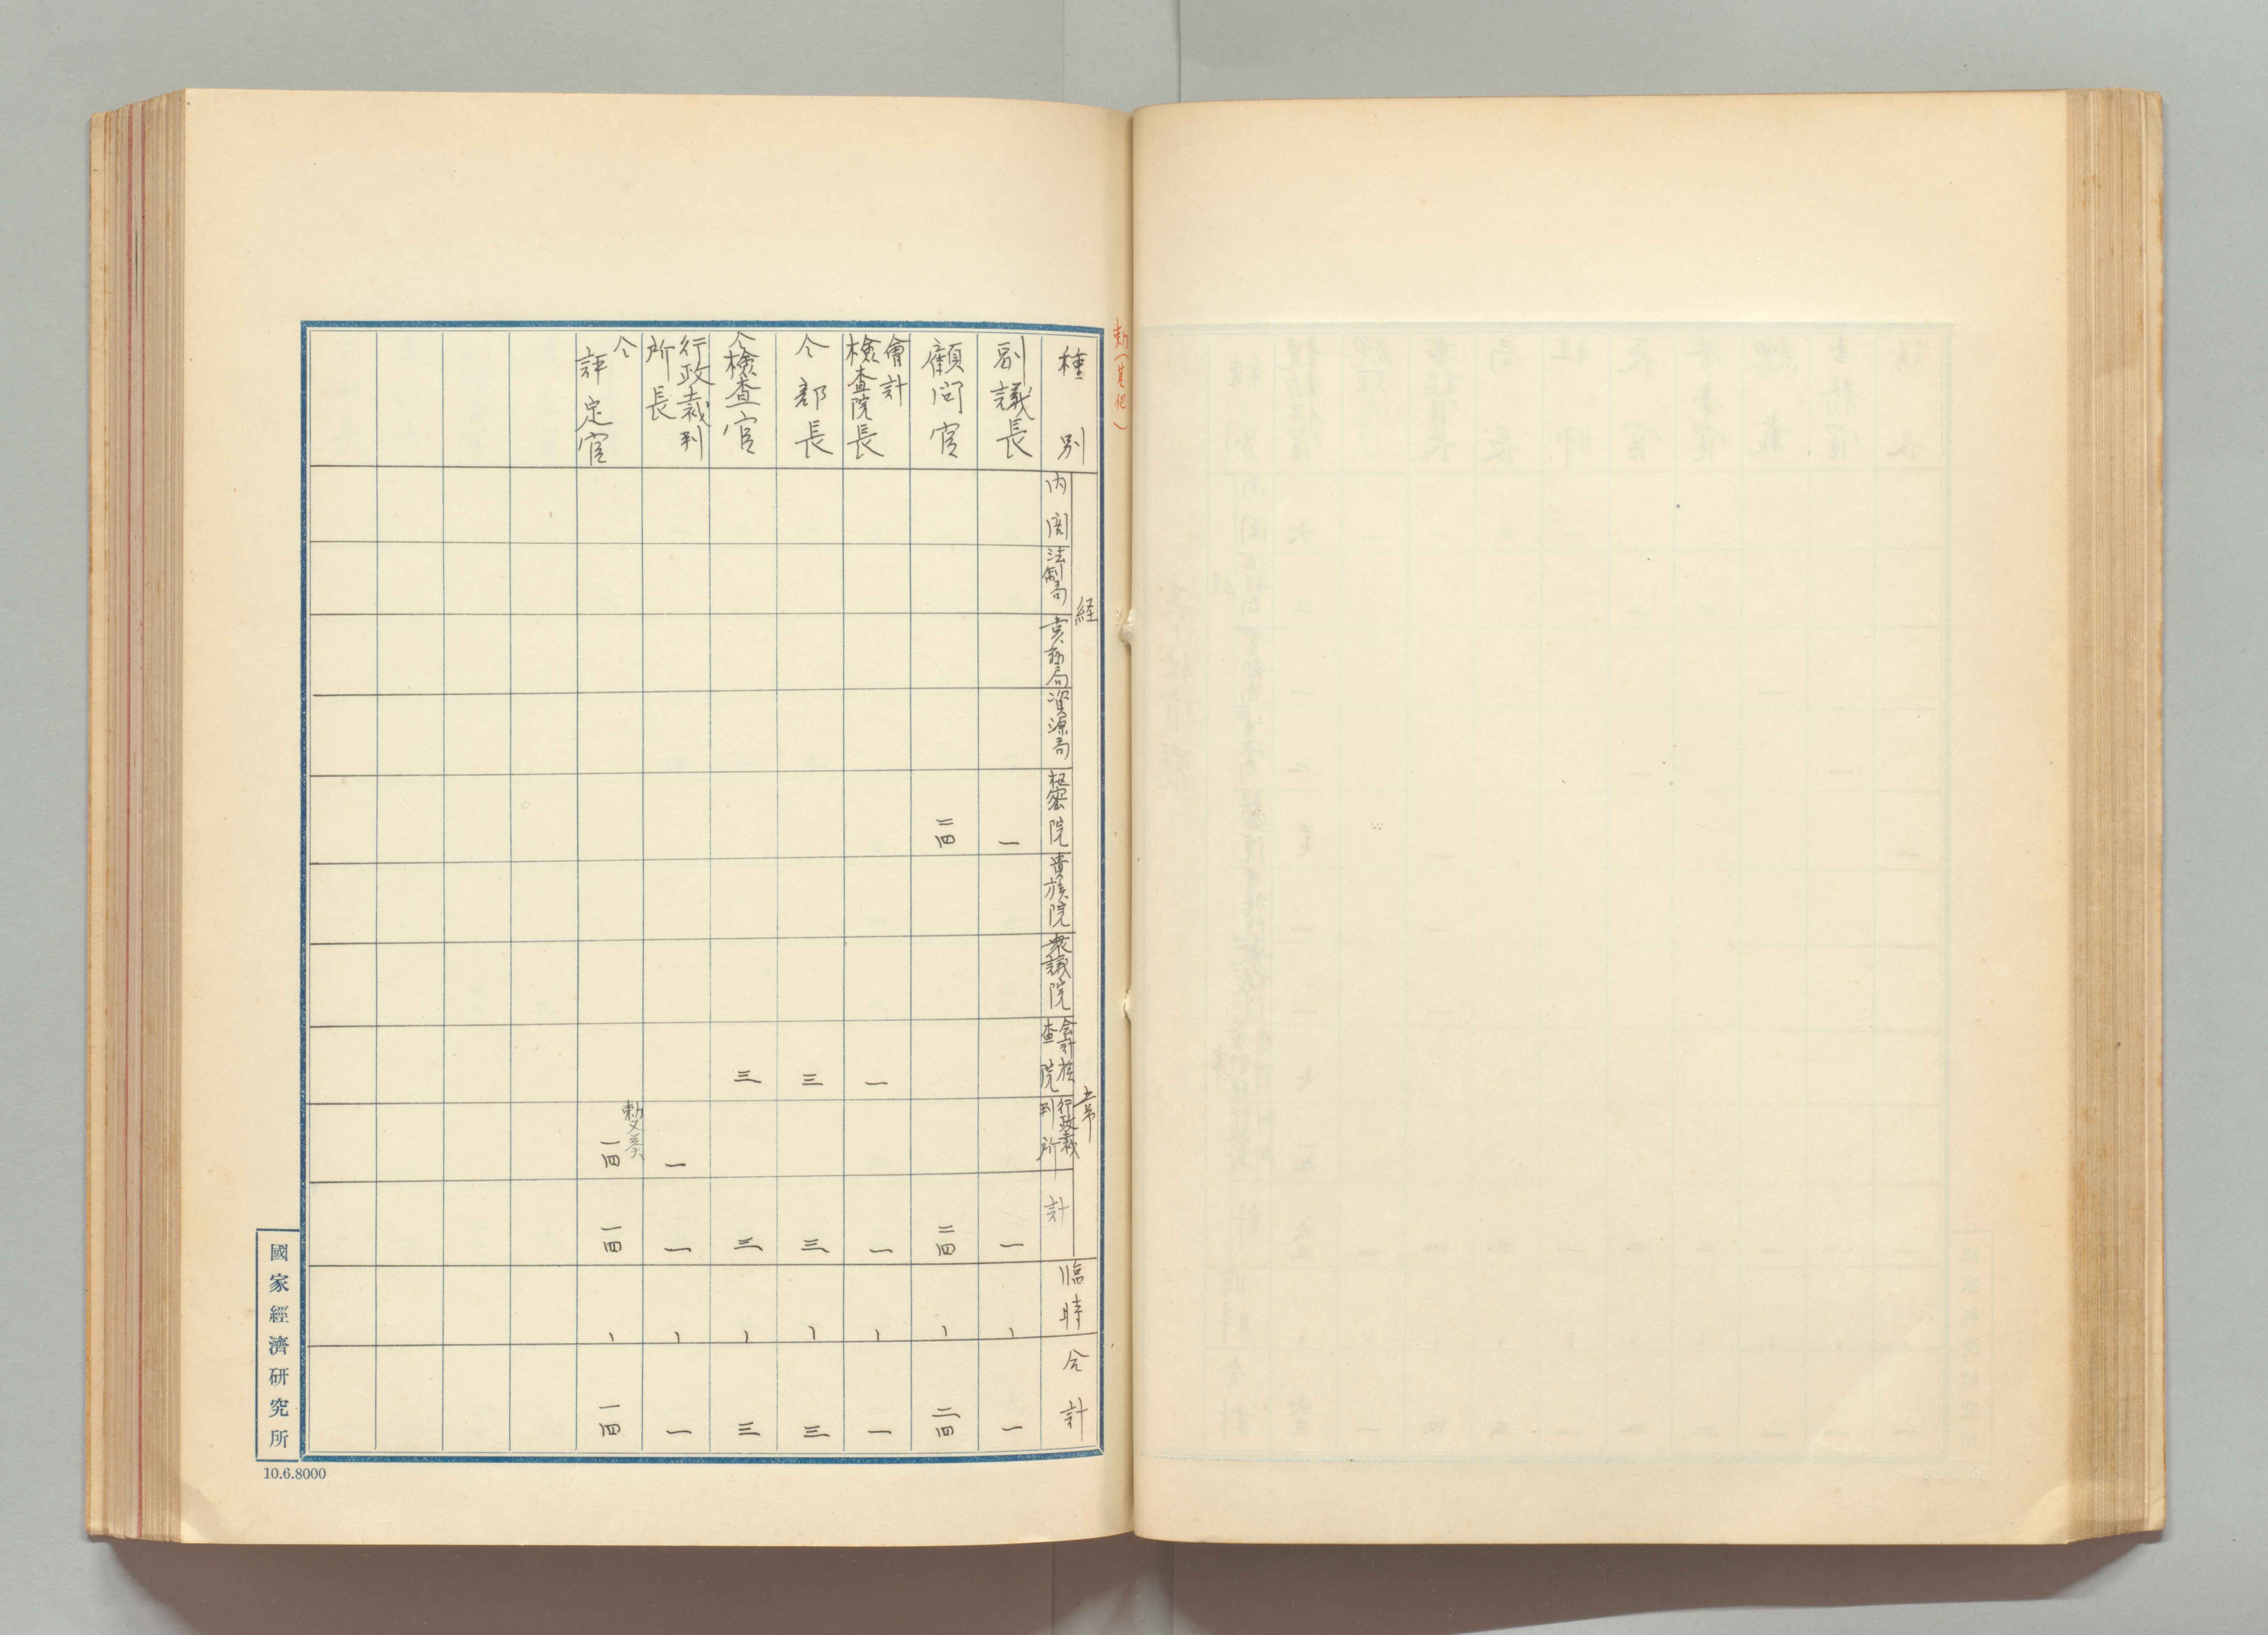 勅(其他)
種別
経常
内閣
法制局
賞勲局
資源局
枢密院
貴族院
衆議院
会計検査院
行政裁判所
計
臨時
合計
副議長 一 一 、 一
顧問官 二四 二四 、 二四
會計検査院長 一 一 、 一
仝部長 三 三 、 三
仝検査官 三 三 、 三
行政裁判所長 一 一 、 一
仝評定官 勅又奏 一四 一四 、 一四
國家經濟研究所
10.6.8000